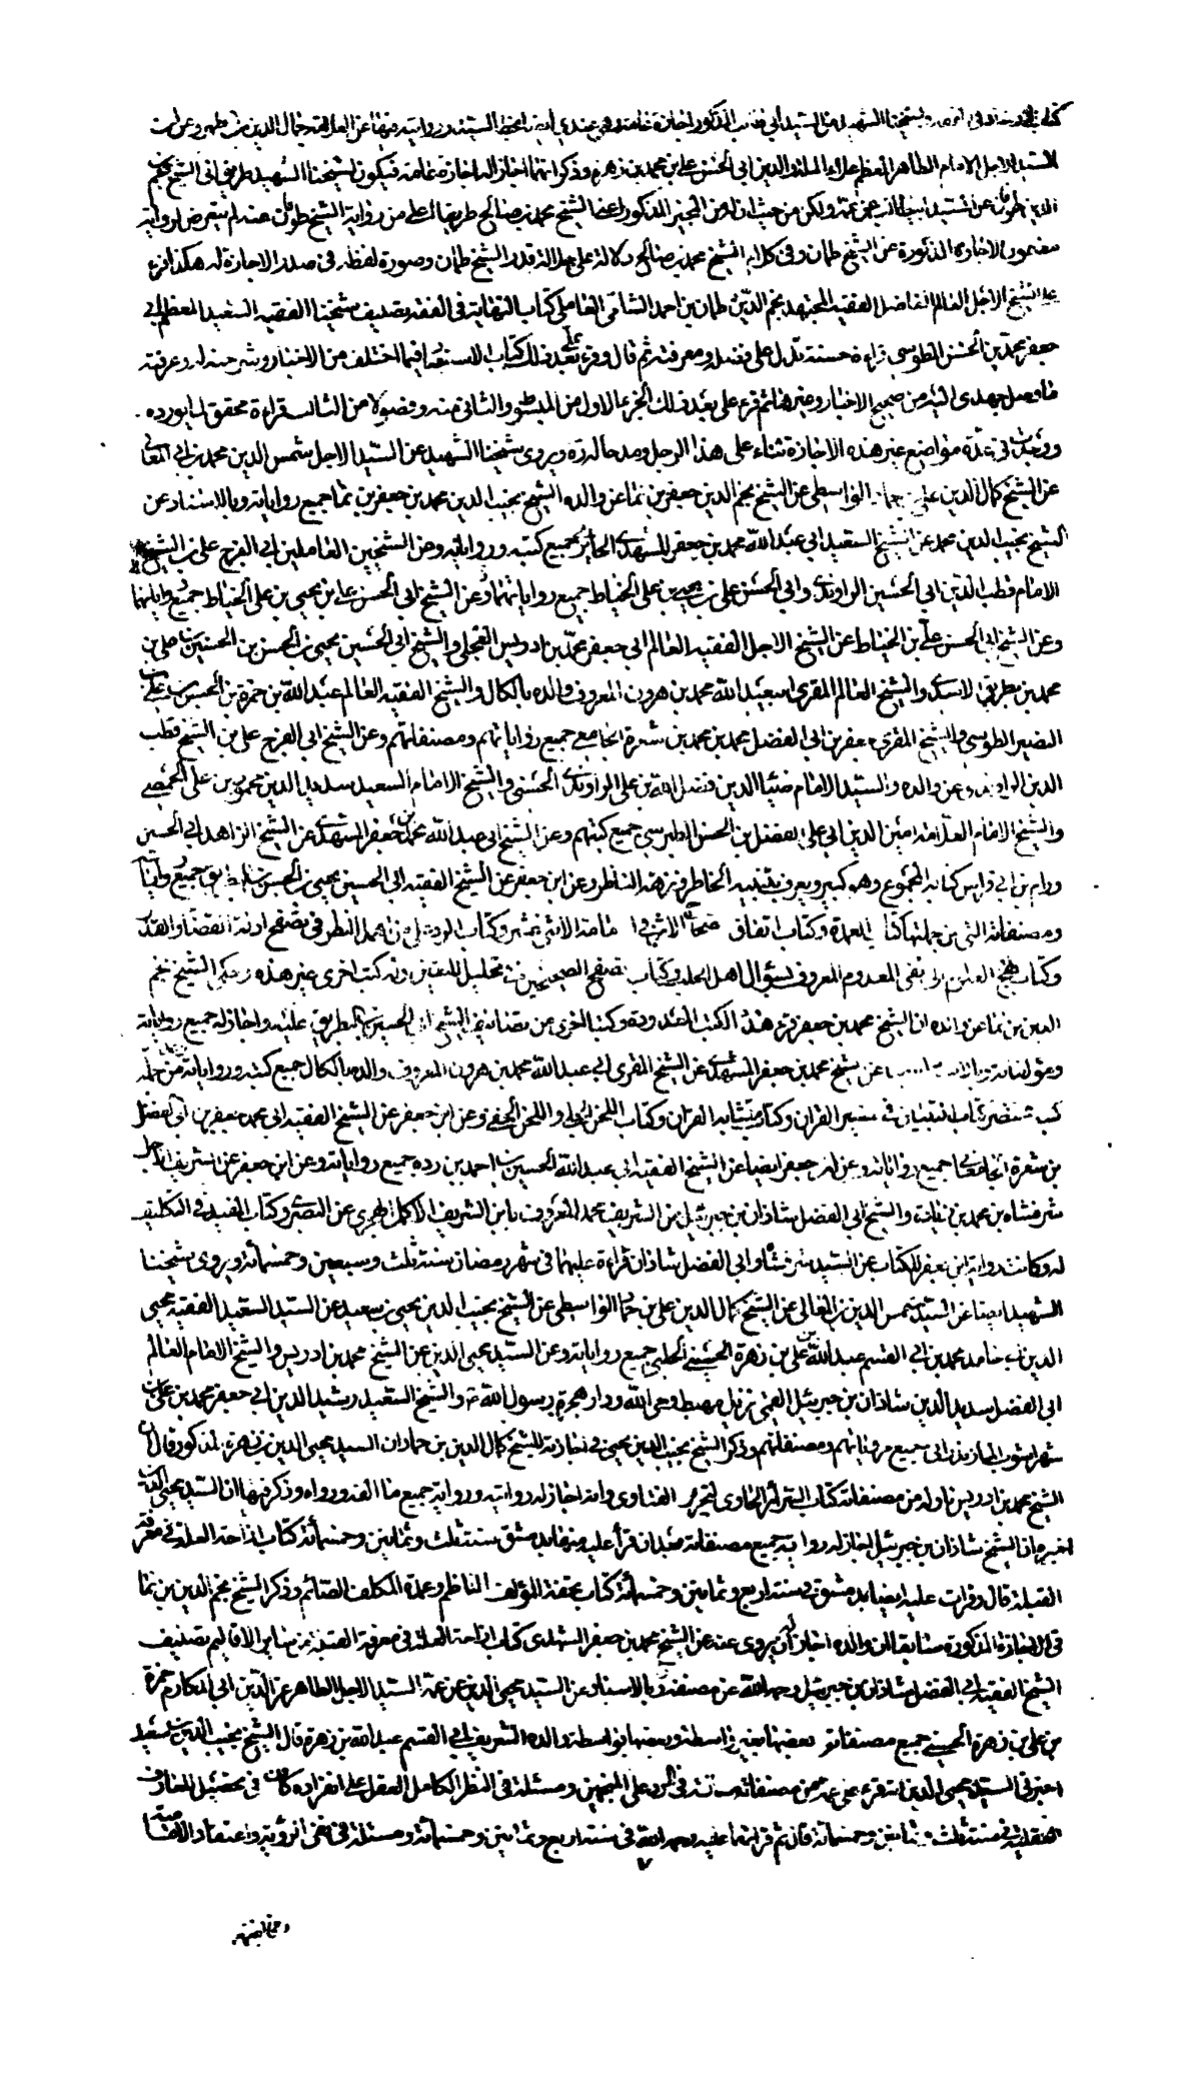 ولشيخنا الشهيد من السيد ابي طالب المذكور اجازة عامة وهي عندي ايضا بخط السيد وروايته فيها عن العلامة جمال الدين بن مطهر وعن
السيد الاجل الامام الطاهر المعظم علاء الملة والدين ابي الحسن علي بن محمد بن زهرة وذكر انهما اجازا له اجازة عامة فيكون لشيخنا الشهيد طريق الى الشيخ نجم
الدين طومان عن السيد ولكن من حيث ان المجيز المذكور اعني الشيخ محمد بن صالح طريقه اعلى من رواية الشيخ طومان عنه لم يتعرض لروايته
مضمون الاجازة المذكورة عن الشيخ طمان وفي كلام الشيخ محمد بن صالح دلالة على جلالة قدر الشيخ طمان وصورة لفظه في صدر الاجازة له هكذا قرء
على الشيخ الاجل العالم الفاضل الفقيه المجتهد نجم الدين طمان بن احمد الشامي العاملي كتاب النهاية في الفقه تصنيف شيخنا الفقيه السعيد المعظم ابي
جعفر محمد بن الحسن الطوسي قراءة حسنة تدل على فضله ومعرفته ثم قال وقرء علي بعد ذلك كتاب الاستبصار فيما اختلف من الاخبار وشرحته له وعرفته
ما وصل جهدي اليه من صحيح الاخبار وغيرها ثم قرء علي بعد ذلك الجزء الاول من المبسوط والثاني منه وفصولا من الثالث قراءة محقق لما يورده
ووجدت في عدة مواضع غير هذه الاجازة ثناء على هذا الرجل ومدحا له وروى شيخنا الشهيد عن السيد الاجل شمس الدين محمد بن ابي المعالي
عن الشيخ كمال الدين علي بن حماد الواسطي عن الشيخ نجم الدين جعفر بن نما عن والده الشيخ نجيب الدين محمد بن جعفر بن نما جميع رواياته وبالاسناد عن
الشيخ نجيب الدين محمد عن الشيخ السعيد ابي عبد الله محمد بن جعفر المشهدي الحائري جميع كتبه ورواياته وعن الشيخين الفاضلين ابي الفرج علي بن الشيخ
الامام قطب الدين ابي الحسين الراوندي وابي الحسن علي بن يحيى بن علي الخياط جميع رواياتهما وعن الشيخ ابي الحسن علي بن يحيى بن علي الخياط جميع رواياتهما
وعن الشيخ ابي الحسن علي بن الخياط عن الشيخ الاجل الفقيه العالم ابي جعفر محمد بن ادريس العجلي والشيخ ابي الحسين يحيى بن الحسن بن الحسين بن علي بن
محمد بن بطريق الاسدي والشيخ العالم المقري ابي عبد الله محمد بن هرون المعروف والده بالكال والشيخ الفقيه العالم عبد الله بن حمزة بن الحسن بن علي
النصير الطوسي والشيخ المقري جعفر بن ابي الفضل محمد بن محمد بن شعرة الجامعي جميع رواياتهم ومصنفاتهم وعن الشيخ ابي الفرج علي بن الشيخ قطب
الدين الراوندي عن والده والسيد الامام ضياء الدين فضل الله بن علي الراوندي الحسني والشيخ الامام السعيد سديد الدين محمود بن علي الحمصي
والشيخ الامام العلامة امين الدين ابي علي الفضل بن الحسن الطبرسي جميع كتبهم وعن الشيخ ابي عبد الله محمد بن جعفر المشهدي عن الشيخ الزاهد ابي الحسين
ورام بن ابي فراس كتابه المجموع وهو كبير ويعرف بتنبيه الخاطر ونزهة الناظر وعن ابن جعفر عن الشيخ الفقيه ابي الحسين يحيى بن الحسن بن بطريق جميع رواياته
ومصنفاته التي من جملتها كتاب العمدة وكتاب اتفاق صحاح الاثر في امامة الاثني عشر وكتاب الرد على اهل النظر في تصفح ادلة القضاء والقدر
وكتاب نهج العلوم الى نفي المعدوم المعروف بسؤال اهل حلب وكتاب تصفح الصحيحين في تحليل المتعتين وله كتب اخرى غير هذه وحكى الشيخ نجم
الدين بن نما عن والده ان الشيخ محمد بن جعفر قرء هذه الكتب المعدودة وكتبا اخرى من تصانيف الشيخ ابي الحسين البطريق عليه واجاز له جميع رواياته
ومؤلفاته وبالاسناد عن شيخ محمد بن جعفر المشهدي عن الشيخ المقري ابي عبد الله محمد بن هرون المعروف والده بالكال جميع كتبه ورواياته فمن جملة
كتبه مختصر كتاب التبيان في تفسير القران وكتاب متشابه القران وكتاب اللحن الجلي واللحن الخفي وعن ابن جعفر عن الشيخ الفقيه ابي محمد جعفر بن ابي الفضل
بن شعرة الجامعاني جميع رواياته وعن ابن جعفر ايضا عن الشيخ الفقيه ابي عبد الله الحسين بن احمد بن ردة جميع رواياته وعن ابن جعفر عن الشريف الاجل
شرفشاه بن محمد بن زيارة والشيخ ابي الفضل شاذان بن جبرئيل عن الشريف محمد المعروف بابن الشريف الاكمل الجعفري عن البصري كتاب المفيد في التكليف
له وكانت رواية ابن جعفر للكتاب عن السيد شرفشاه وابي الفضل شاذان قراءة عليهما في شهر رمضان سنة ثلث وسبعين وخمسمائة ويروي شيخنا
الشهيد ايضا عن السيد شمس الدين بن ابي المعالي عن الشيخ كمال الدين علي بن حماد الواسطي عن الشيخ نجيب الدين يحيى بن سعيد عن السيد السعيد الفقيه محيى
الدين ابي حامد محمد بن ابي القسم عبد الله بن علي بن زهرة الحسيني الحلبي جميع رواياته وعن السيد محيى الدين عن الشيخ محمد بن ادريس والشيخ الامام العالم
ابي الفضل سديد الدين شاذان بن جبرئيل القمي نزيل مهبط وحي الله ودار هجرة رسول الله ص والشيخ السعيد رشيد الدين ابي جعفر محمد بن علي بن
شهراشوب المازندراني جميع مروياتهم ومصنفاتهم وذكر الشيخ نجيب الدين يحيى في اجازته للشيخ كمال الدين بن حماد ان السيد محيى الدين بن زهرة المذكور قال ان
الشيخ محمد بن ادريس ناوله من مصنفاته كتاب السرائر الحاوي لتحرير الفتاوى وانه اجاز له روايته ورواية جميع ما الفه ورواه وذكر فيها ان السيد محيى الدين
اخبره ان الشيخ شاذان بن جبرئيل اجاز له رواية جميع مصنفاته بعد ان قرأ عليه منها بدمشق سنة ثلث وثمانين وخمسمائة كتاب ازاحة العلة في معرفة
القبلة قال وقرات عليه ايضا بدمشق في سنة اربع وثمانين وخمسمائة كتاب تحفة المؤلف الناظم وعمدة المكلف الصائم وذكر الشيخ نجم الدين بن نما
في الاجازة المذكورة سابقا ان والده اجاز له ان يروي عنه عن الشيخ محمد بن جعفر المشهدي كتاب ازاحة العلة في معرفة القبلة من ساير الاقاليم تصنيف
الشيخ الفقيه ابي الفضل شاذان بن جبرئيل رحمه الله عن مصنفه وبالاسناد عن السيد محيى الدين عن عمه السيد الاجل الطاهر عز الدين ابي المكارم حمزة
بن علي بن زهرة الحسيني جميع مصنفاته بعضها بغير واسطة وبعضها بواسطة والده الشريف ابي القسم عبد الله بن زهرة قال الشيخ نجيب الدين بن سعيد
اخبرني السيد محيى الدين انه قرء على عمه من مصنفاته مسئلة في الرد على المنجمين ومسئلة في النظر الكامل العقل على انفراده كاف في تحصيل المعارف
العقلية في سنة ثلث وثمانين وخمسمائة قال ثم قراتها عليه رحمه الله في سنة اربع وثمانين وخمسمائة ومسئلة في نفي الرؤية واعتقاد الامامية